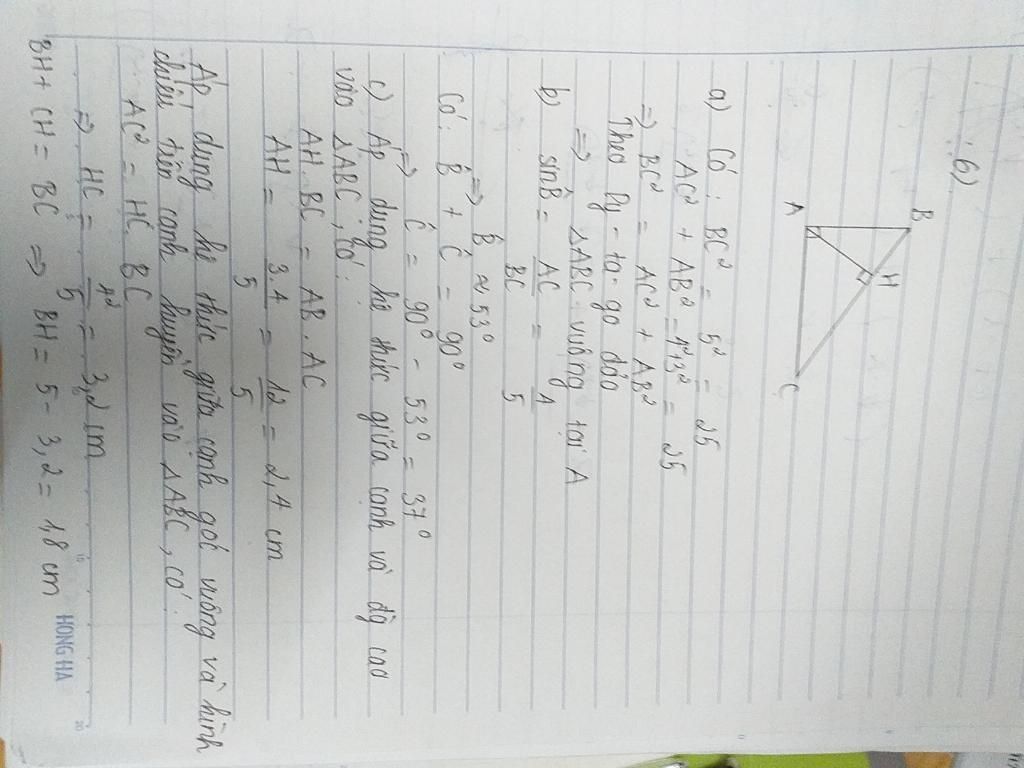 6)
B
H
A
C
a) Có: BC² = 5² = 25
AC² + AB² = 4²+3² = 25
⇒ BC² = AC² + AB²
Theo Py-ta-go đảo
⇒ △ABC vuông tại A
b) sinB̂ = AC/BC = 4/5
⇒ B̂ ≈ 53⁰
Có: B̂ + Ĉ = 90⁰
⇒ Ĉ = 90⁰ - 53⁰ = 37⁰
c) Áp dụng hệ thức giữa cạnh và độ cao
vào △ABC, có:
AH. BC = AB. AC
AH = 3.4/5 = 12/5 = 2,4 cm
Áp dụng hệ thức giữa cạnh góc vuông và hình
chiếu trên cạnh huyền vào △ABC, có:
AC² = HC. BC
⇒ HC = 4²/5 = 3,2 cm
BH + CH = BC ⇒ BH = 5 - 3,2 = 1,8 cm
HONG HA